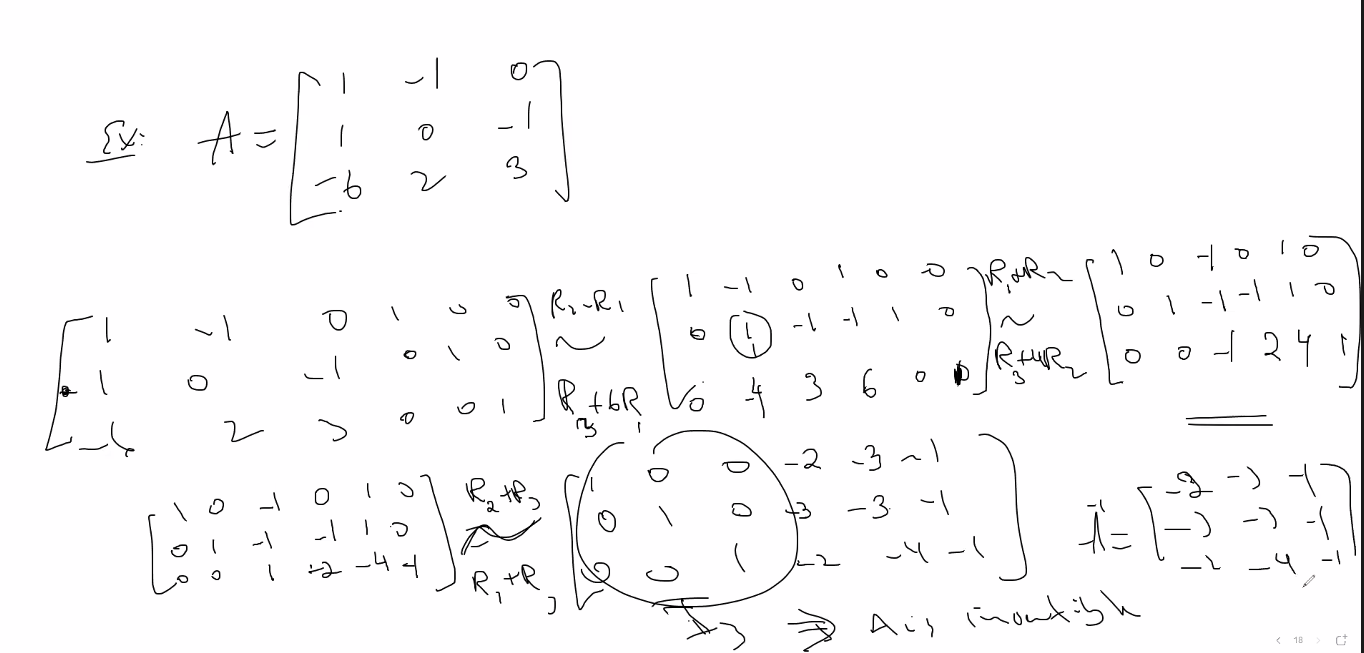 Ex: A = [ 1 -1 0
1 0 -1
-6 2 3 ]
[ 1 -1 0 1 0 0
1 0 -1 0 1 0
-6 2 3 0 0 1 ]
R2-R1
~
R3+6R1
[ 1 -1 0 1 0 0
0 1 -1 -1 1 0
0 -4 3 6 0 1 ]
R1+R2
~
R3+4R2
[ 1 0 -1 0 1 0
0 1 -1 -1 1 0
0 0 -1 2 4 1 ]
[ 1 0 -1 0 1 0
0 1 -1 -1 1 0
0 0 1 -2 -4 -1 ]
R2+R3
~
R1+R3
[ 1 0 0 -2 -3 -1
0 1 0 -3 -3 -1
0 0 1 -2 -4 -1 ]
A⁻¹ = [ -2 -3 -1
-3 -3 -1
-2 -4 -1 ]
I3 ⇒ A is invertible
< 18 >